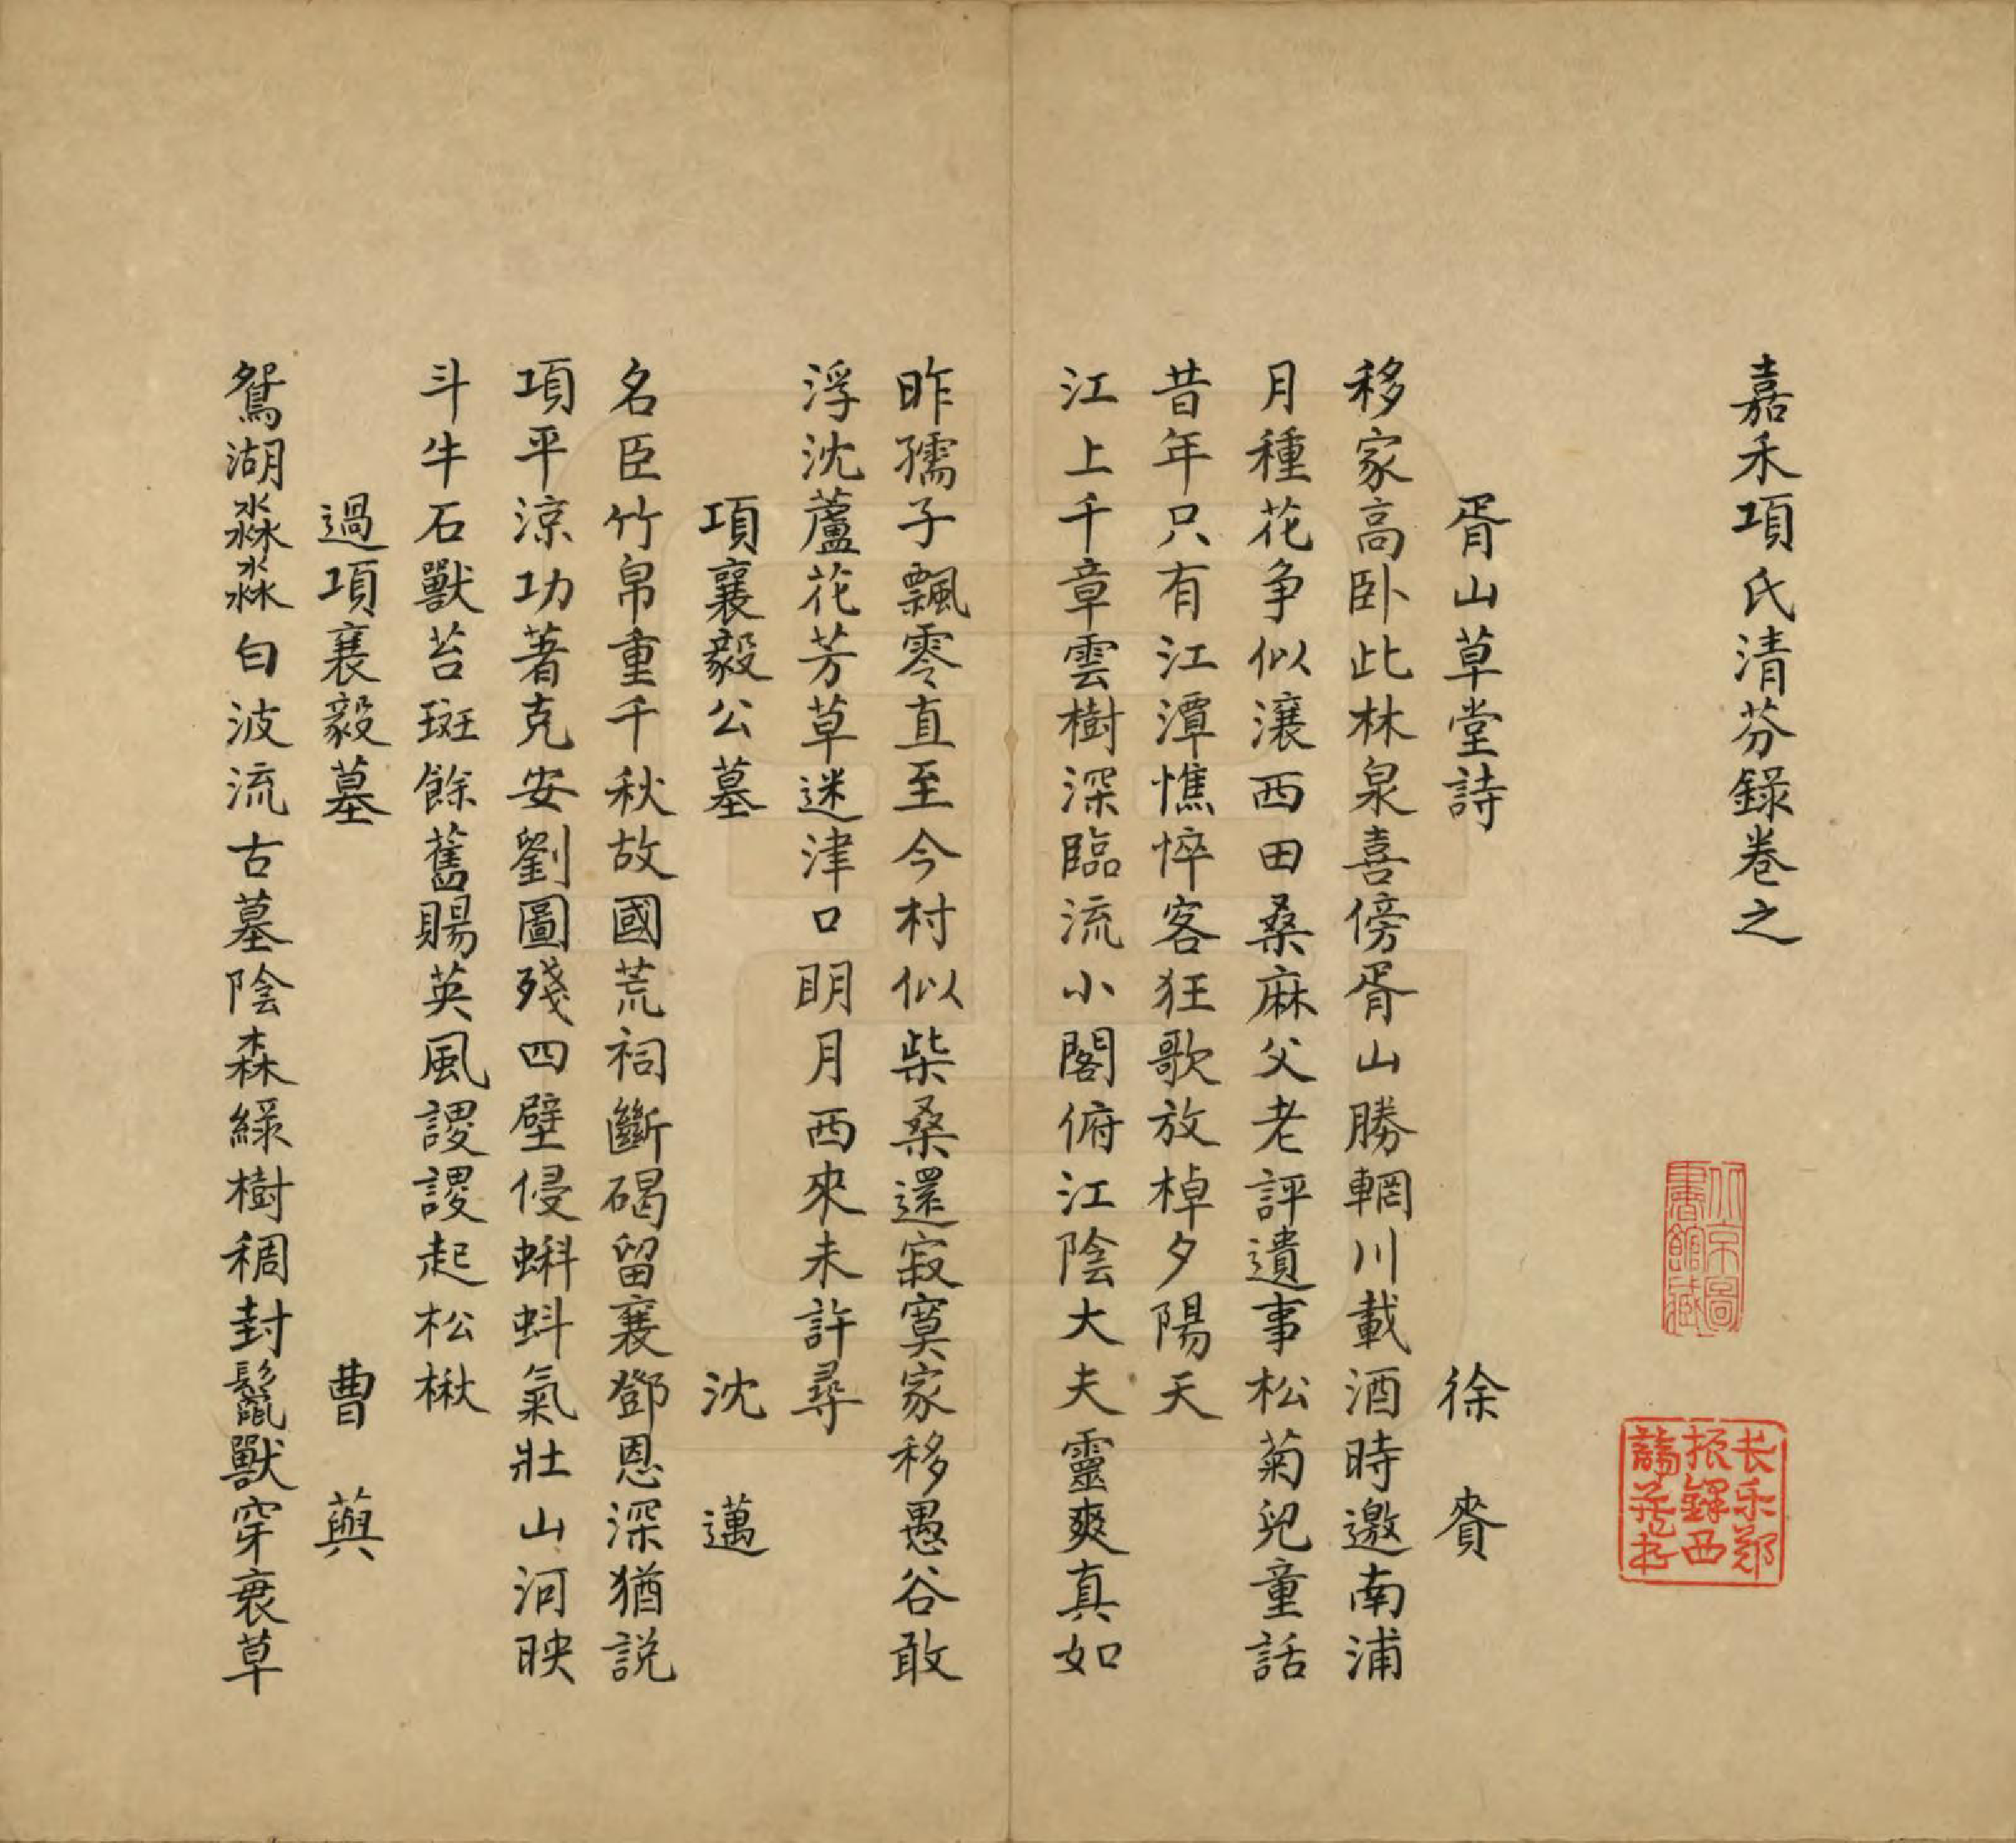 嘉禾項氏清芬錄卷之
北京圖
書館藏
长乐郑
振鐸西
諦藏书
胥山草堂詩 徐賚
移家高卧此林泉喜傍胥山勝輞川載酒時邀南浦
月種花争似瀼西田桑麻父老評遺事松菊兒童話
昔年只有江潭憔悴客狂歌放棹夕陽天
江上千章雲樹深臨流小閣俯江陰大夫靈爽真如
昨孺子飄零直至今村似柴桑還寂寞家移愚谷敢
浮沈蘆花芳草迷津口明月西來未許尋
項襄毅公墓 沈邁
名臣竹帛重千秋故國荒祠斷碣留襄鄧恩深猶説
項平涼功著克安劉圖殘四壁侵蝌蚪氣壯山河映
斗牛石獸苔斑餘舊賜英風謖謖起松楸
過項襄毅墓 曹䕒
鴛湖淼淼白波流古墓陰森綠樹稠封鬣獸穿衰草